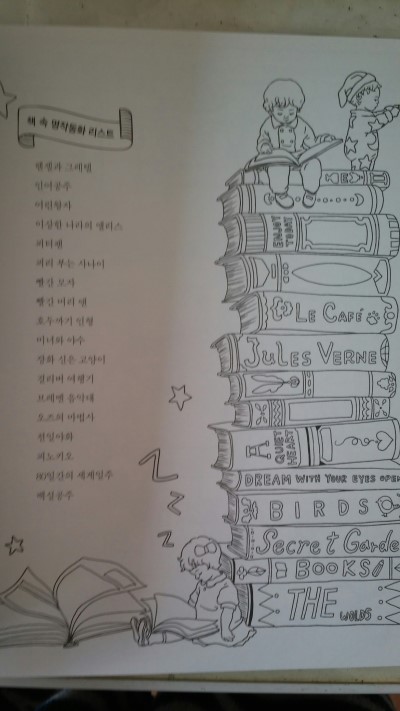 책 속 명작동화 리스트
헨젤과 그레텔
인어공주
어린왕자
이상한 나라의 앨리스
피터팬
피리 부는 사나이
빨간 모자
빨간 머리 앤
호두까기 인형
미녀와 야수
장화 신은 고양이
걸리버 여행기
브레멘 음악대
오즈의 마법사
천일야화
피노키오
80일간의 세계일주
백설공주
ENJOY
TODAY
LE CAFÉ
JULES VERNE
A
QUIET
HEART
DREAM WITH YOUR EYES OPEN
BIRDS
Secret Garde
BOOKS!
THE WORLDS
Z
Z
Z